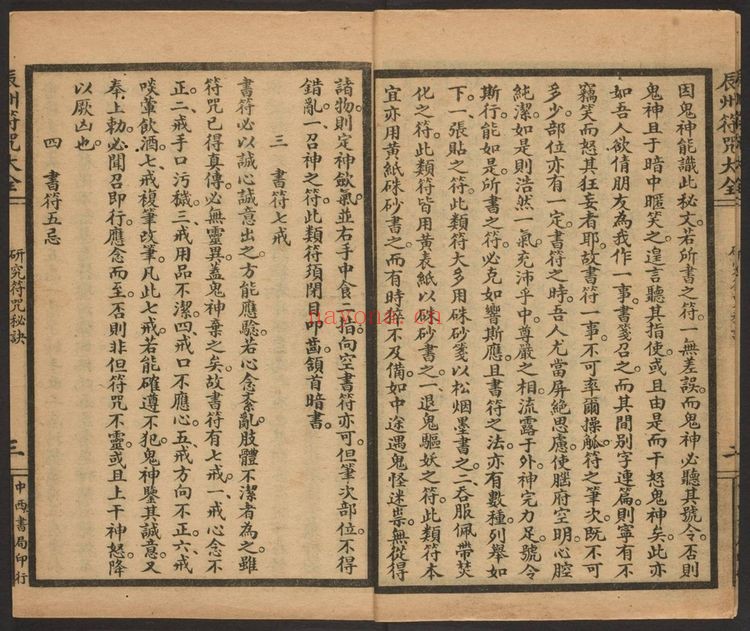 辰州符咒大全
因鬼神能識此秘文若所書之符一無差誤而鬼神必聽其號令否則
鬼神且于暗中曬笑之遑言聽其指使或且由是而干怒鬼神矣此亦
如吾人欲倩朋友為我作一事書箋召之而其間別字連篇則寧有不
竊笑而怒其狂妄者耶故書符一事不可率爾操觚符之筆次既不可
多少部位亦有一定書符之時吾人尤當屏絕思慮使腦府空明心腔
純潔如是則浩然一氣充沛乎中尊嚴之相流露于外神完力足號令
斯行能如是所書之符必克如響斯應且書符之法亦有數種列舉如
下一張貼之符此類符大多用硃砂箋以松烟墨書之二吞服佩帶焚
化之符此類符皆用黃表紙以硃砂書之一退鬼驅妖之符此類符本
宜亦用黃紙硃砂書之而有時猝不及備如中途遇鬼怪迷祟無從得
諸物則定神斂氣並右手中食二指向空書符亦可但筆次部位不得
錯亂一召神之符此類符須閉目叩齒領首暗書
三 書符七戒
書符必以誠心誠意出之方能應驗若心念紊亂肢體不潔者為之雖
符咒已得真傳必無靈異蓋鬼神棄之矣故書符有七戒一戒心念不
正二戒手口污穢三戒用品不潔四戒口不應心五戒方向不正六戒
啖葷飲酒七戒複筆改筆凡此七戒若能確遵不犯鬼神鑒其誠意又
奉上勅必聞召即行應念而至否則非但符咒不靈或且上干神怒降
以厥凶也
四 書符五忌
辰州符咒大全
研究符咒秘訣
三
中西書局印行
nayona.cn